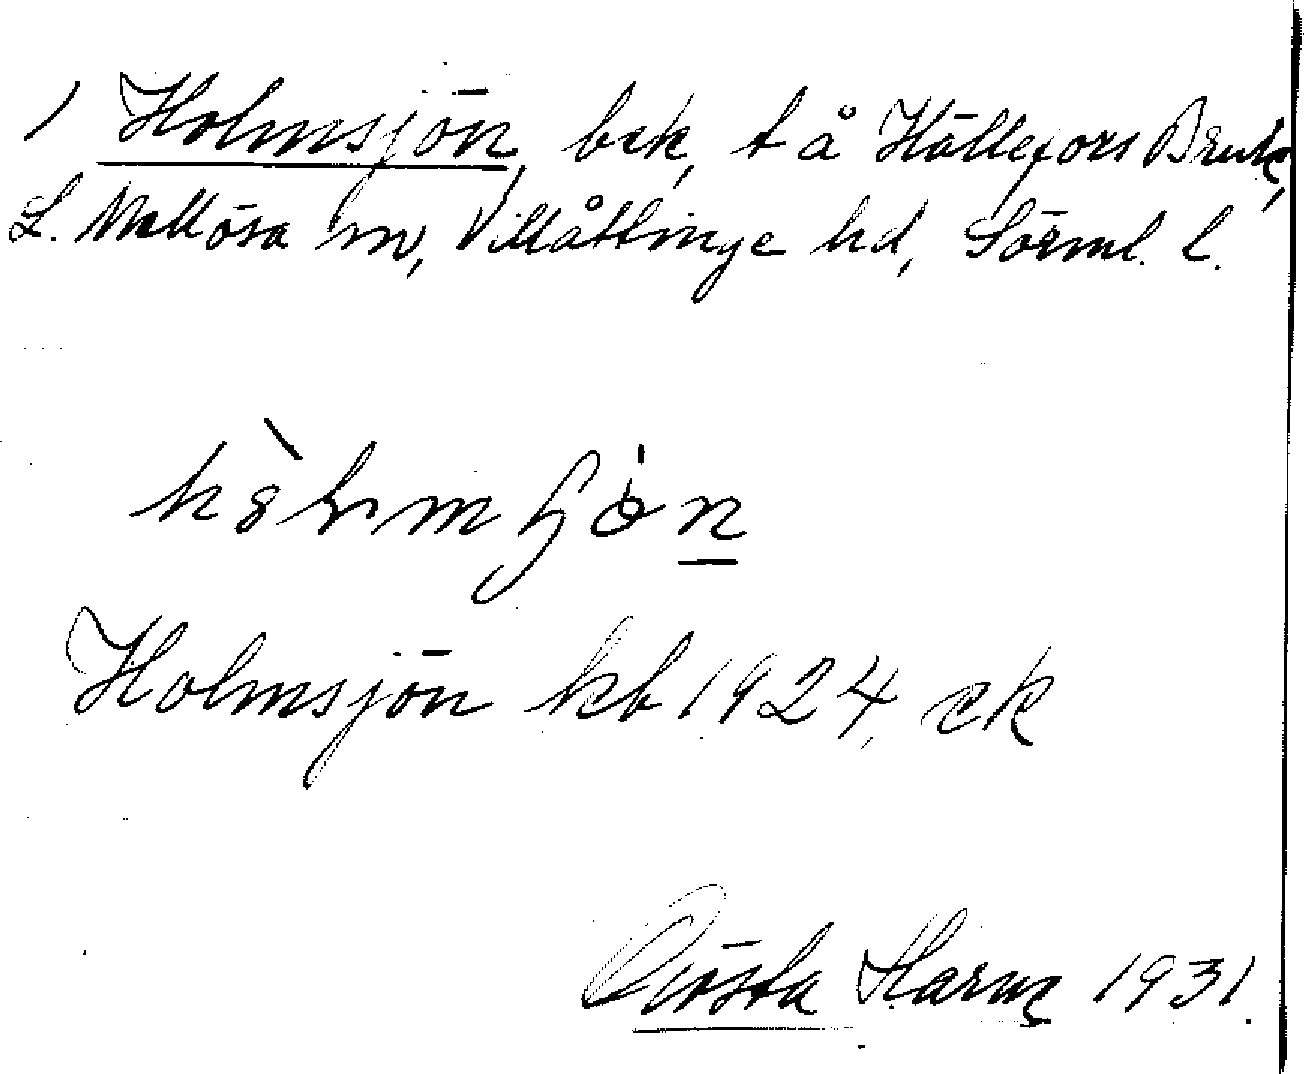 1 Holmsjön, bek, t å Hällefors Bruk,
L. Mellösa sn, Villåttinge hd, Sörml. l.
Holmsjön kb 1924, ek
Gösta 1931.